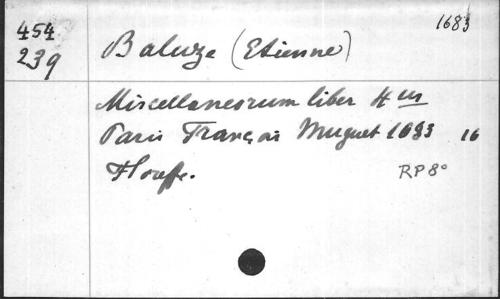 454
239
1683
Baluze (Etienne)
Miscellaneorum liber 4us
Paris François Muguet 1683 16
Floreffe.
RP 8°